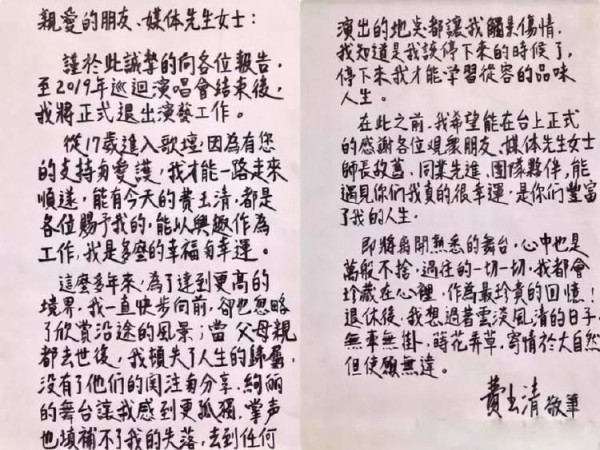 親愛的朋友、媒体先生女士：
謹於此誠摯的向各位報告，
至2019年巡迴演唱會結束後，
我將正式退出演藝工作。
從17歲進入歌壇，因為有您
的支持与愛護，我才能一路走來
順遂，能有今天的費玉清，都是
各位賜予我的，能以興趣作為
工作，我是多麼的幸福与幸運。
這麼多年來，為了達到更高的
境界，我一直快步向前，卻也忽略
了欣賞沿途的風景；當父母親
都去世後，我頓失了人生的歸屬，
沒有了他們的関注与分享，絢麗
的舞台讓我感到更孤獨，掌声
也填補不了我的失落，去到任何
演出的地点都讓我觸景傷情，
我知道是我該停下來的時候了，
停下來我才能学習從容的品味
人生。
在此之前，我希望能在台上正式
的感谢各位觀衆朋友、媒体先生女士
師長故舊、同業先進、團隊夥伴，能
遇見你們我真的很幸運，是你們豐富
了我的人生。
即將离開熟悉的舞台，心中也是
萬般不捨，過往的一切一切，我都會
珍藏在心裡，作為最珍貴的回憶！
退休後，我想過著雲淡風清的日子，
無牽無掛，蒔花弄草，寄情於大自然
但使願無違。
費玉清 敬筆